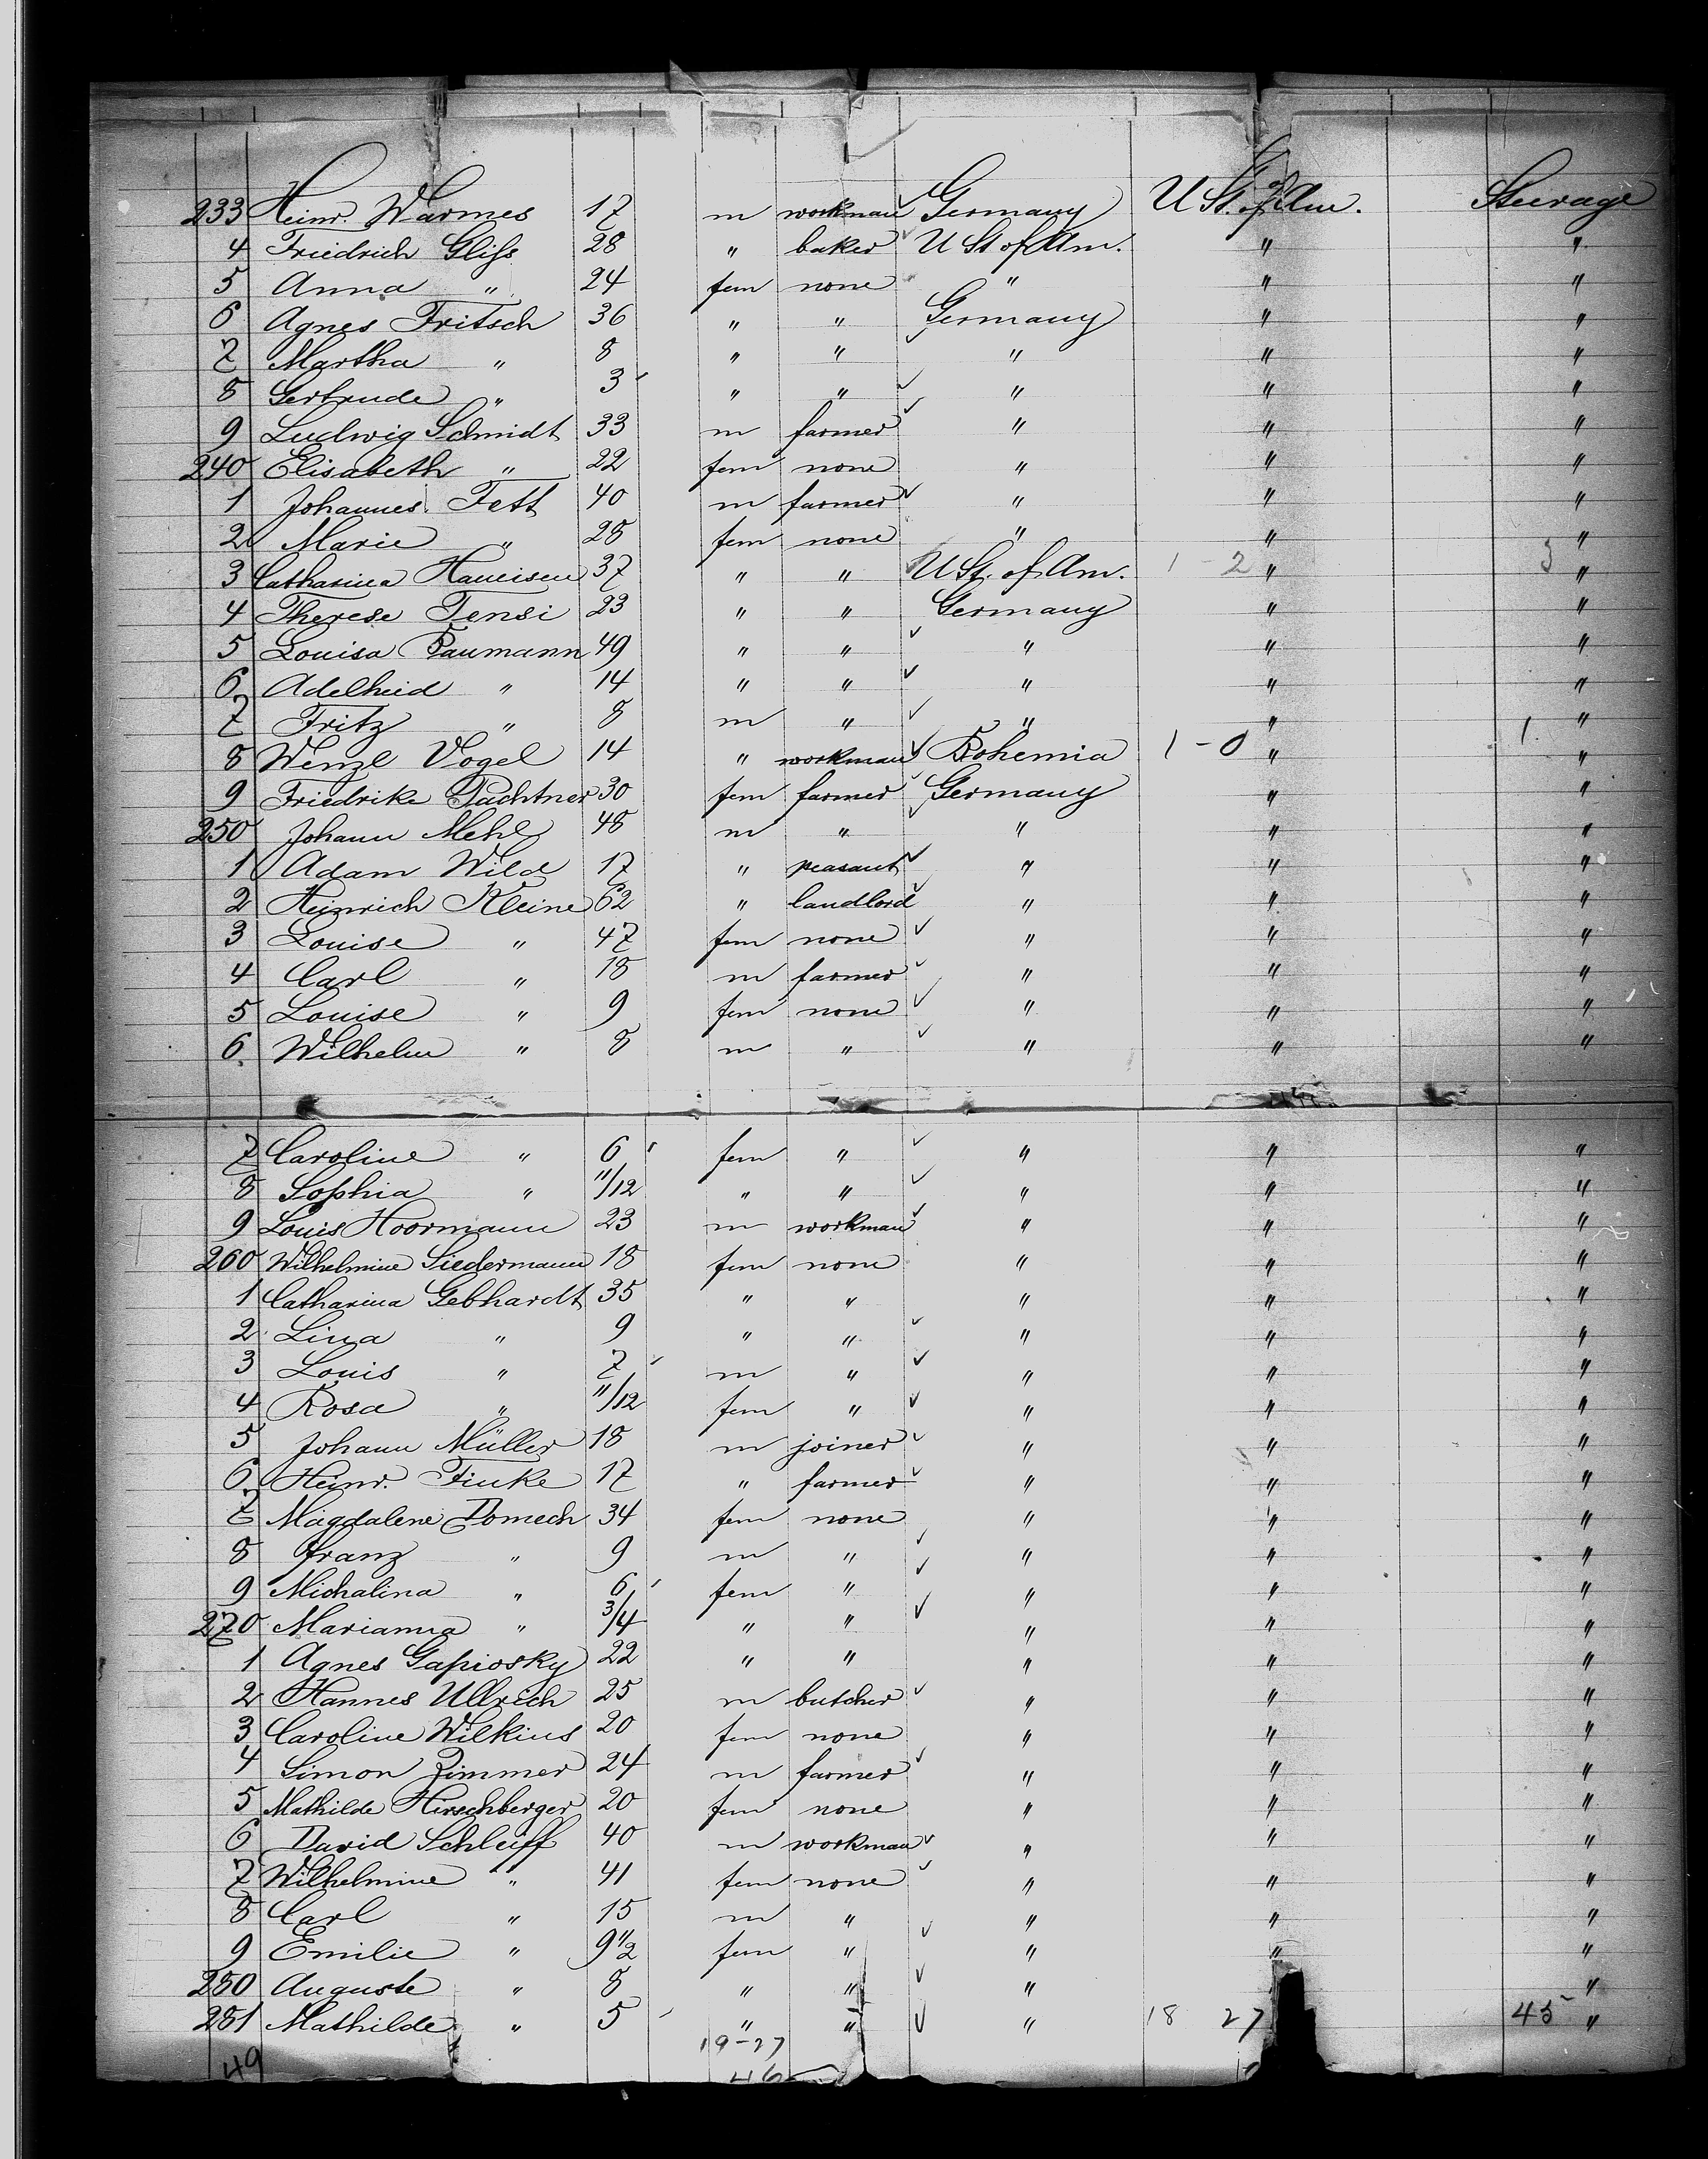 233 Heinr. Warmes 17 m workman Germany U St. of Am. Steerage
4 Friedrich Gliss 28 " baker U St of Am. " "
5 Anna " 24 fem none " " "
6 Agnes Fritsch 36 " " Germany " "
7 Martha " 8 " " " " "
8 Gertrude " 3 " " " " "
9 Ludwig Schmidt 33 m farmer " " "
240 Elisabeth " 22 fem none " " "
1 Johannes Fett 40 m farmer " " "
2 Marie " 28 fem none " " "
3 Catharina Haueisen 37 " " U St. of Am. 1 - 2 " 3 "
4 Therese Tensi 23 " " Germany " "
5 Louisa Baumann 49 " " " " "
6 Adelheid " 14 " " " " "
7 Fritz " 8 m " " " "
8 Wenzl Vogel 14 " workman Bohemia 1 - 0 " 1. "
9 Friedrike Pachtner 30 fem farmer Germany " "
250 Johann Mehl 48 m " " " "
1 Adam Wild 17 " peasant " " "
2 Heinrich Kleine 62 " landlord " " "
3 Louise " 47 fem none " " "
4 Carl " 18 m farmer " " "
5 Louise " 9 fem none " " "
6 Wilhelm " 8 m " " " "
7 Caroline " 6 fem " " " "
8 Sophia " 11/12 " " " " "
9 Louis Hoormann 23 m workman " " "
260 Wilhelmine Siedermann 18 fem none " " "
1 Catharina Gebhardt 35 " " " " "
2 Lina " 9 " " " " "
3 Louis " 7 m " " " "
4 Rosa " 11/12 fem " " " "
5 Johann Müller 18 m joiner " " "
6 Heinr. Finke 17 " farmer " " "
7 Magdalene Domech 34 fem none " " "
8 Franz " 9 m " " " "
9 Michalina " 6 fem " " " "
270 Marianna " 3/4 " " " " "
1 Agnes Gapiosky 22 " " " " "
2 Hannes Ullrich 25 m butcher " " "
3 Caroline Wilkins 20 fem none " " "
4 Simon Zimmer 24 m farmer " " "
5 Mathilde Hirschberger 20 fem none " " "
6 David Schleiff 40 m workman " " "
7 Wilhelmine " 41 fem none " " "
8 Carl " 15 m " " " "
9 Emilie " 9 1/2 fem " " " "
280 Auguste " 8 " " " "
281 Mathilde " 5 " " " 18 27 45 "
19-27
49 46